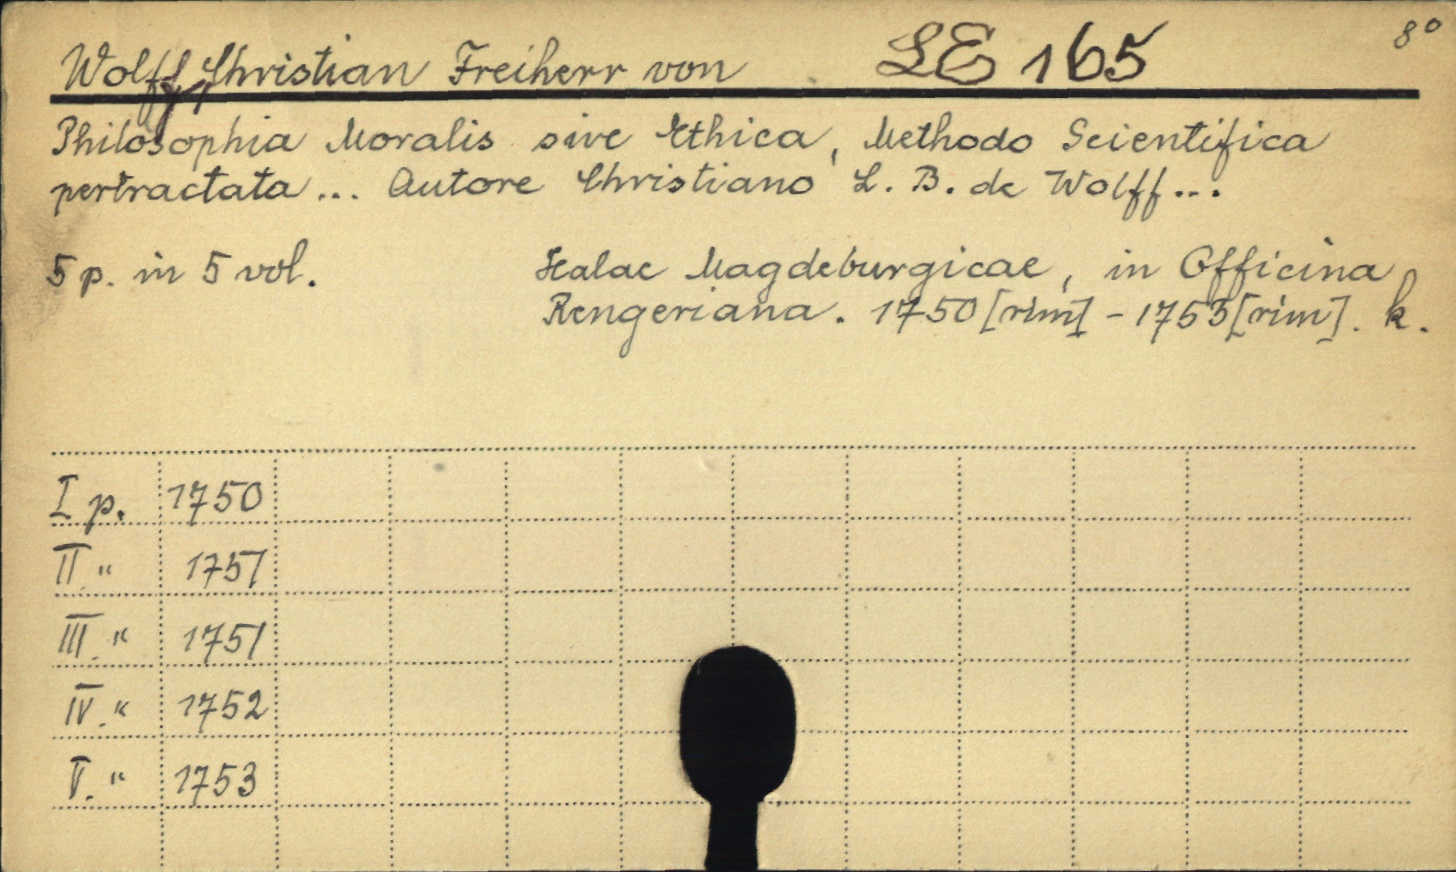 Wolff, Christian Freiherr von LE 165 8°
Philosophia Moralis sive Ethica, Methodo Scientifica
pertractata... Autore Christiano L. B. de Wolff...
5 p. in 5 vol. Halae Magdeburgicae, in Officina
Rengeriana. 1750 [rim] - 1753 [rim]. k.
I p. 1750
II. " 1751
III. " 1751
IV. " 1752
V. " 1753